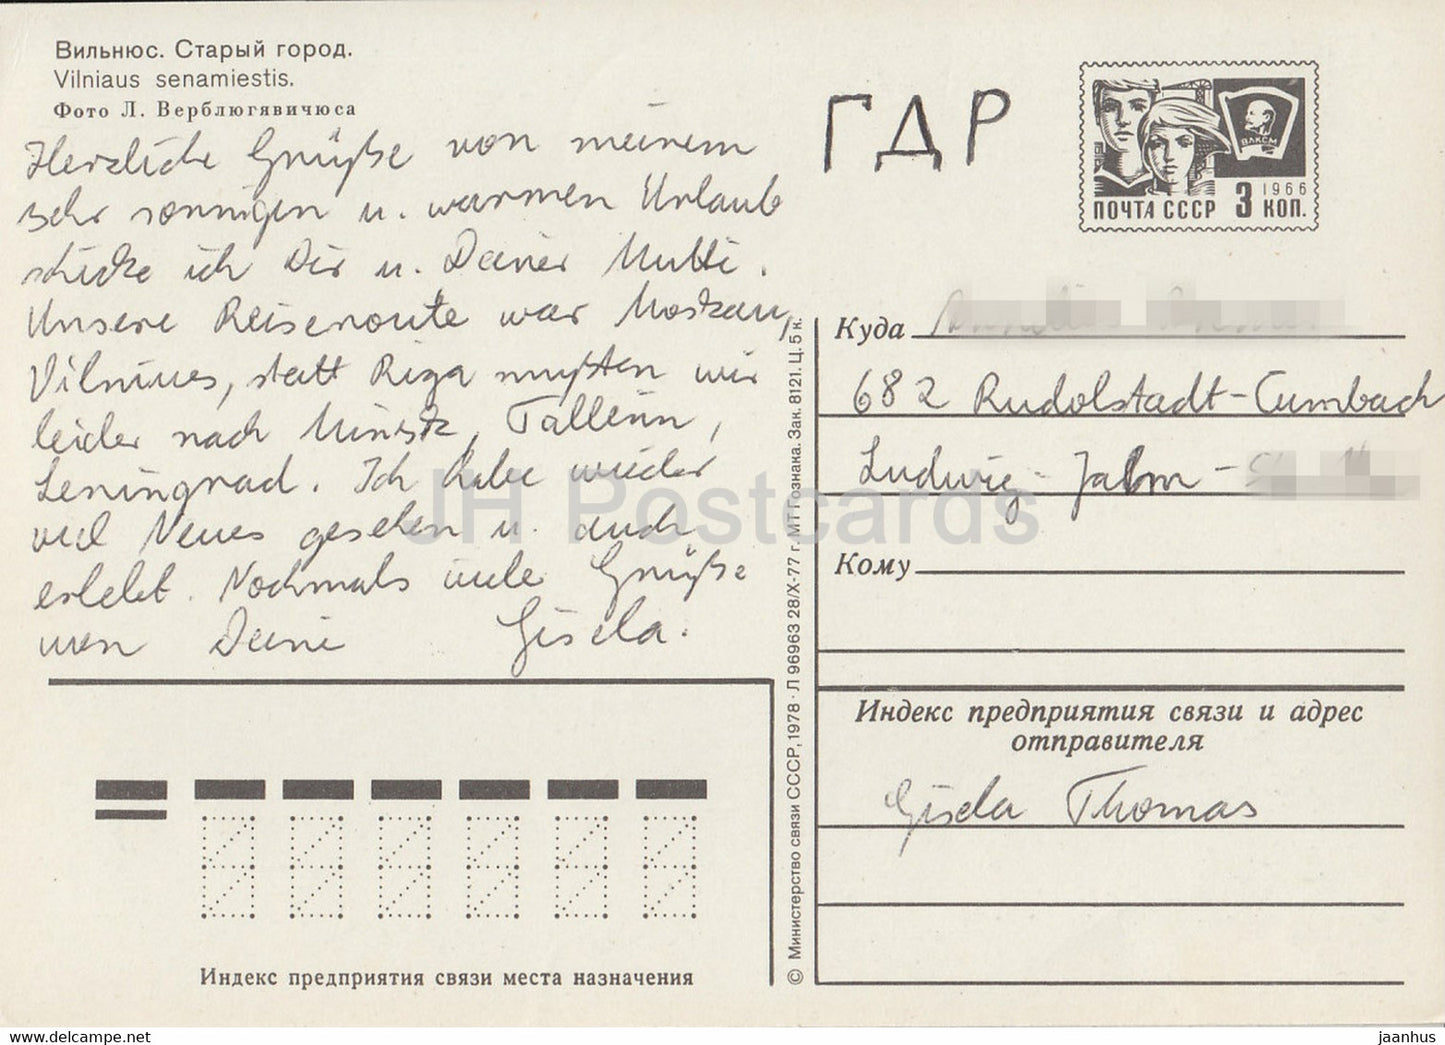 Вильнюс. Старый город.
Vilniaus senamiestis.
Фото Л. Верблюгявичюса
Herzliche Grüße von meinem
sehr sonnigen u. warmen Urlaub
schicke ich Dir u. Deiner Mutti.
Unsere Reiseroute war Moskau,
Vilnius, statt Riga mußten wir
leider nach Minsk, Tallenn,
Leningrad. Ich habe wieder
viel Neues gesehen u. auch
erlebt. Nochmals viele Grüße
von Deine Gisela.
ГДР
ВЛКСМ
1966
ПОЧТА СССР 3 КОП.
Куда
682 Rudolstadt-Cumbach
Ludwig-Jahn-
Кому
Индекс предприятия связи и адрес
отправителя
Gisela Thomas
© Министерство связи СССР, 1978 · Л 96963 28/X-77 г. МТ Гознака. Зак. 8121. Ц. 5 к.
Индекс предприятия связи места назначения
JH Postcards
www.delcampe.net
jaanhus